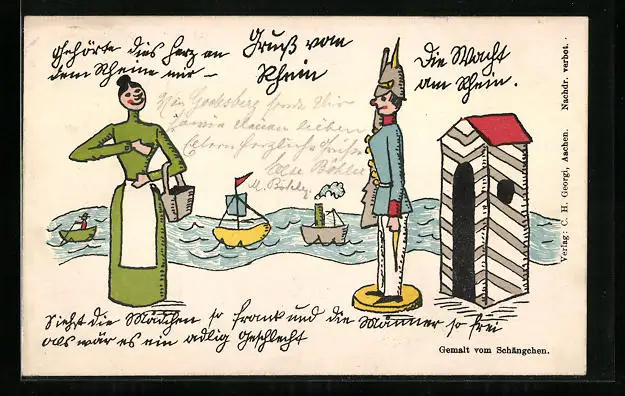 Gehörte dies Herz an
dem Rheine mir —
Gruß vom
Rhein
Die Wacht
am Rhein.
Godesberg
lieben
Eltern herzliche Grüße
M. Böhle
Siehst die Mädchen so frank und die Männer so frei
als wär es ein adlig Geschlecht
Gemalt vom Schängchen.
Verlag: C. H. Georgi, Aachen. Nachdr. verbot.